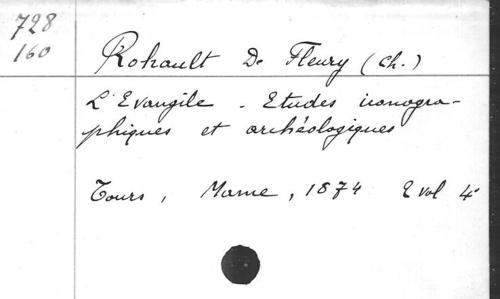 728
160
Rohault De Fleury (Ch.)
L'Evangile - Etudes iconogra-
phiques et archéologiques
Tours, Mame, 1874 2 vol 4°